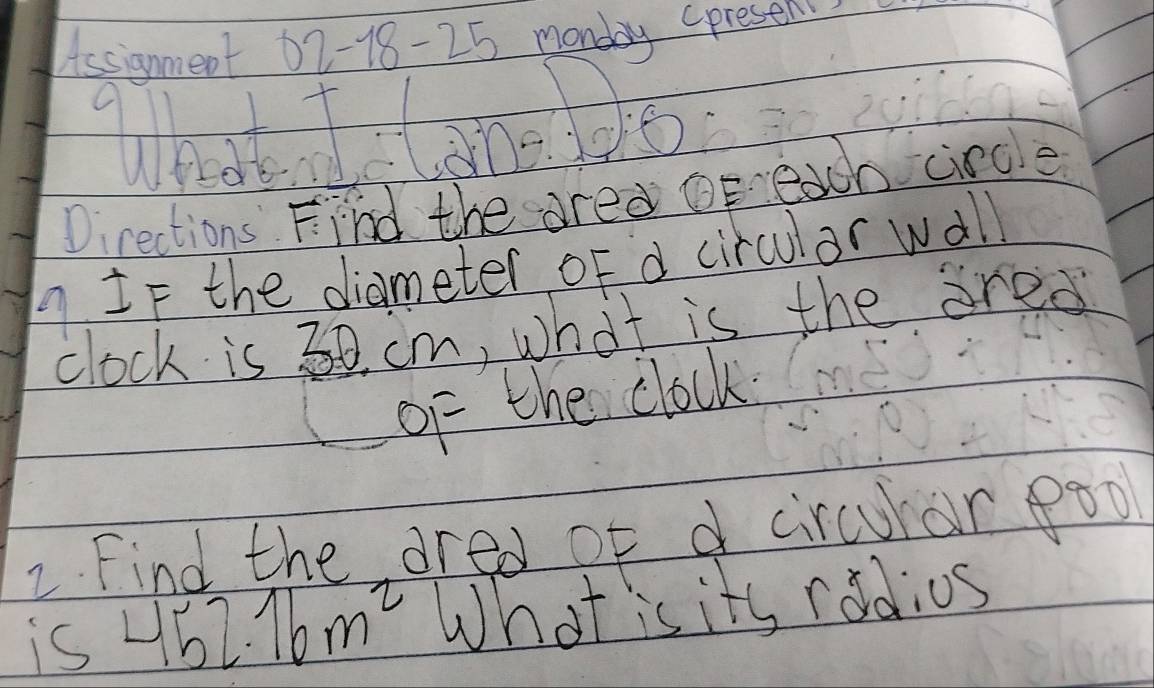 Assignment 02-18-25 monday
What I Can Do
Directions Find the area OF each circle
1 IF the diameter OF a circular wall
clock is 30 cm, what is the area
OF the clock.
2. Find the area OF a circular pool
is 452.16m² What is its radius